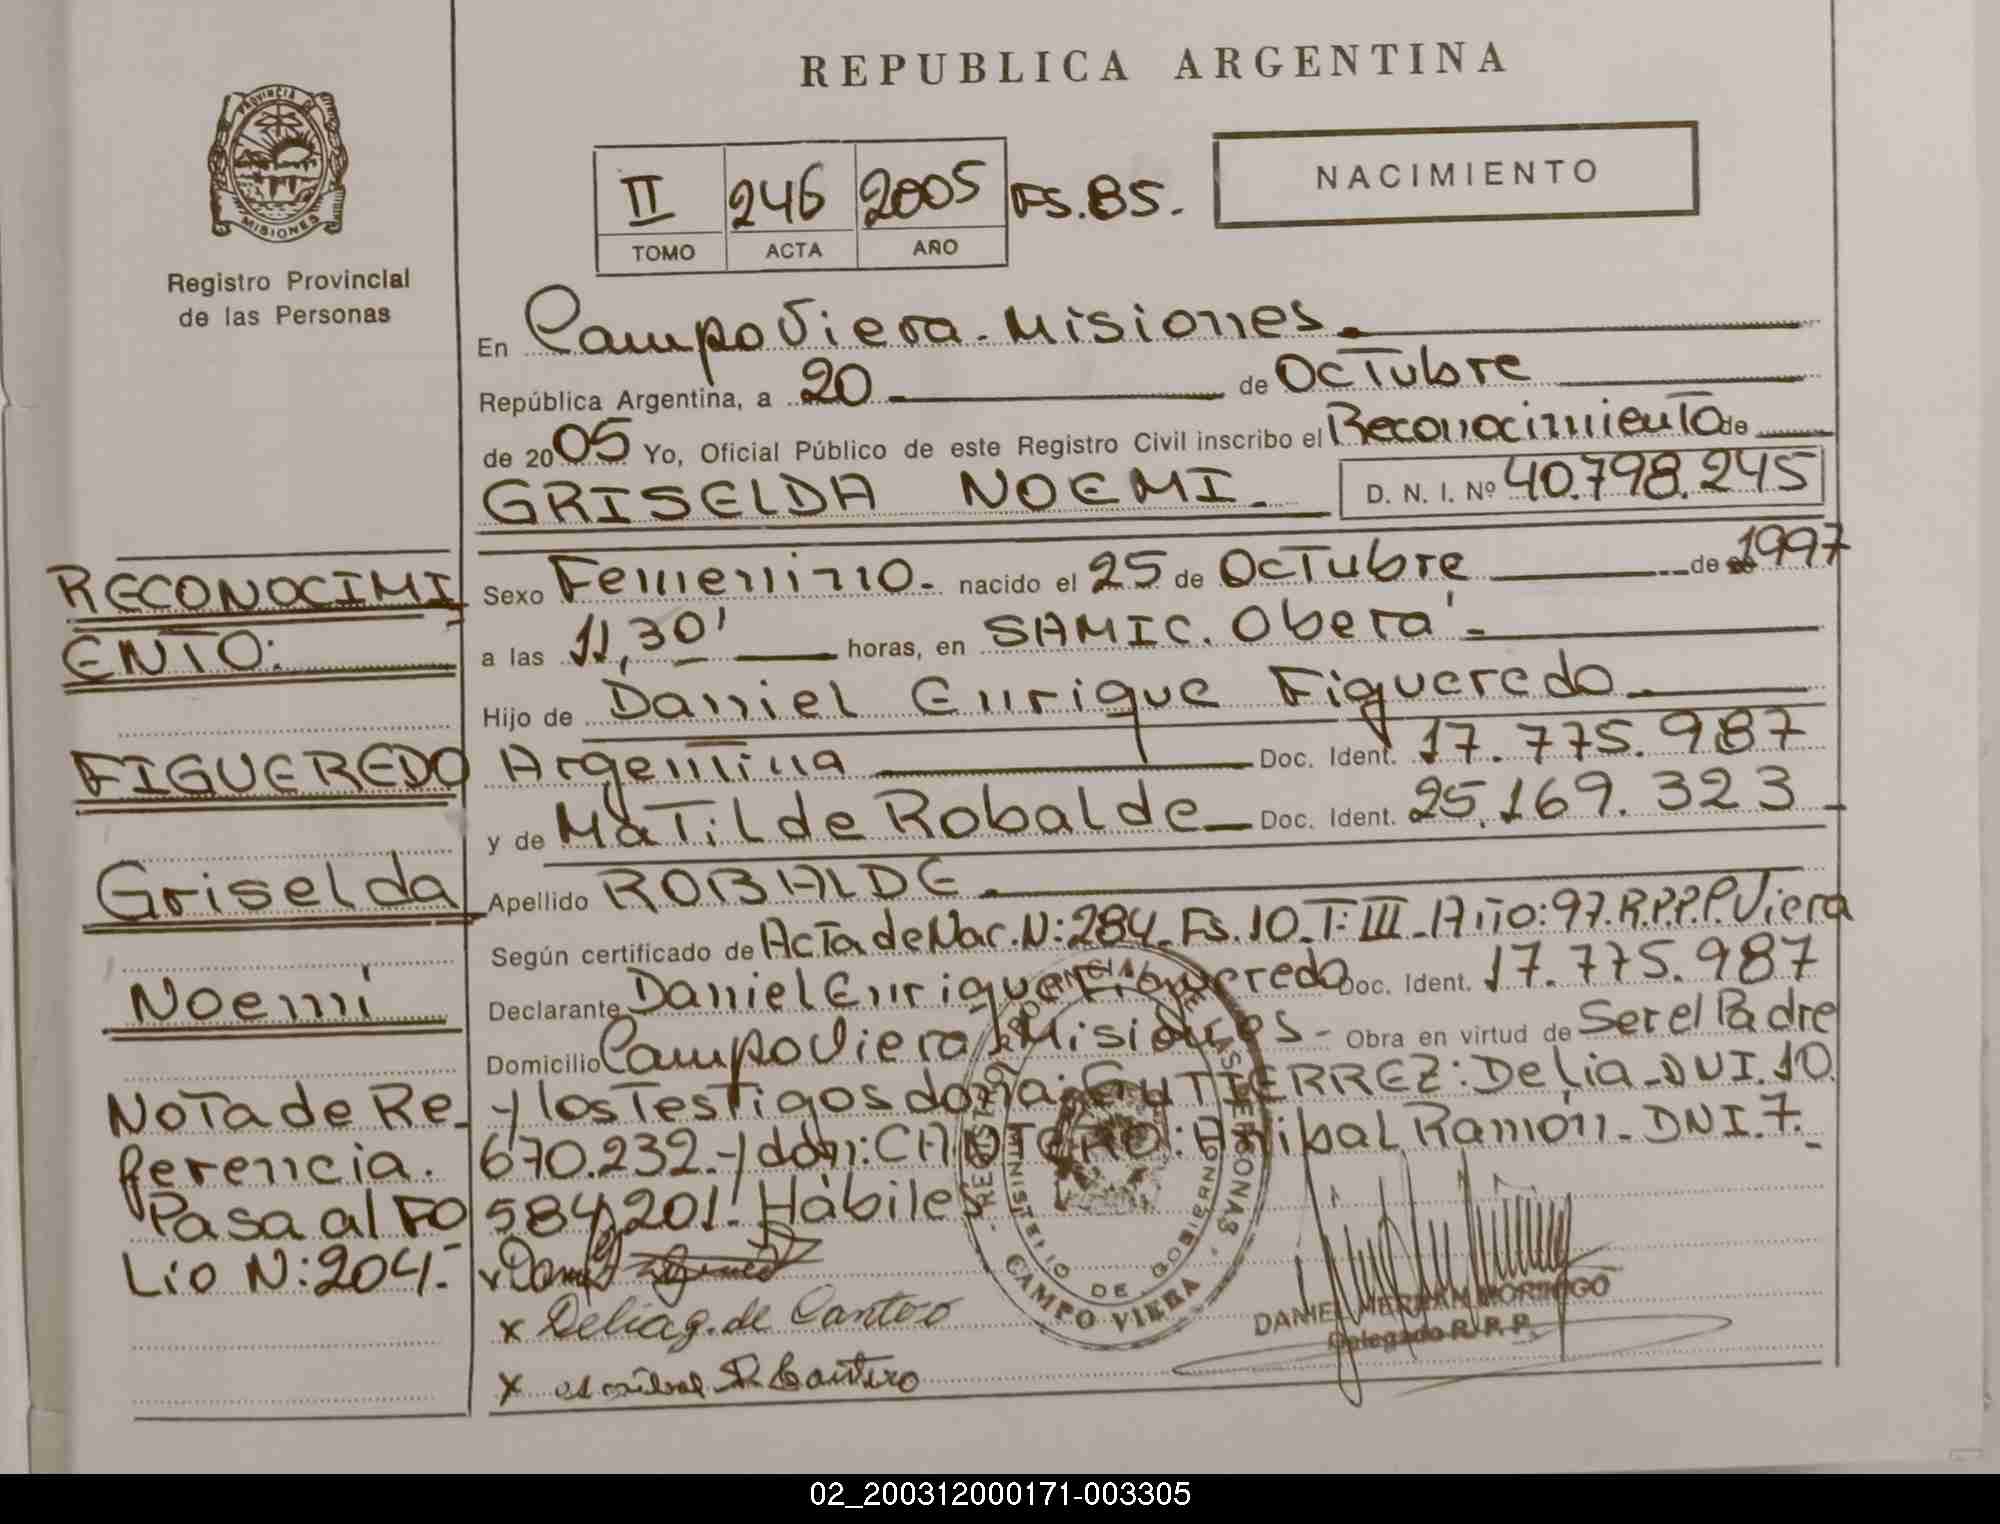 REPUBLICA ARGENTINA
PROVINCIA DE
MISIONES
Registro Provincial
de las Personas
II 246 2005 FS.85.-
TOMO ACTA AÑO
NACIMIENTO
En Campo Viera - Misiones.
República Argentina, a 20 de Octubre
de 2005 Yo, Oficial Público de este Registro Civil inscribo el Reconocimiento de
GRISELDA NOEMI.- D. N. I. Nº 40.798.245
RECONOCIMI
ENTO:
FIGUEREDO
Griselda
Noemí
Nota de Re-
ferencia.
Pasa al FO
Lio N:204.-
Sexo Femenino.- nacido el 25 de Octubre de 1997
a las 11,30' horas, en SAMIC. Oberá.-
Hijo de Daniel Enrique Figueredo.
Argentina Doc. Ident. 17.775.987
y de Matilde Robalde Doc. Ident. 25.169.323
Apellido ROBALDE.
Según certificado de Acta de Nac. N:284- Fs.10-T:III-Año:97.R.P.P.P.Viera
Declarante Daniel Enrique Figueredo Doc. Ident. 17.775.987
Domicilio Campo Viera Misiones - Obra en virtud de Ser el Padre
y los Testigos doña: GUTIERREZ: Delia-DNI.10.
670.232.-y don: CANTERO: Anibal Ramón-DNI.7.-
584,201. Hábiles
x Delia g. de Cantero
x R Cantero
REGISTRO PROVINCIAL DE LAS PERSONAS
MINISTERIO DE GOBIERNO
CAMPO VIERA
DANIEL
Delegado R. P. P.
02_200312000171-003305